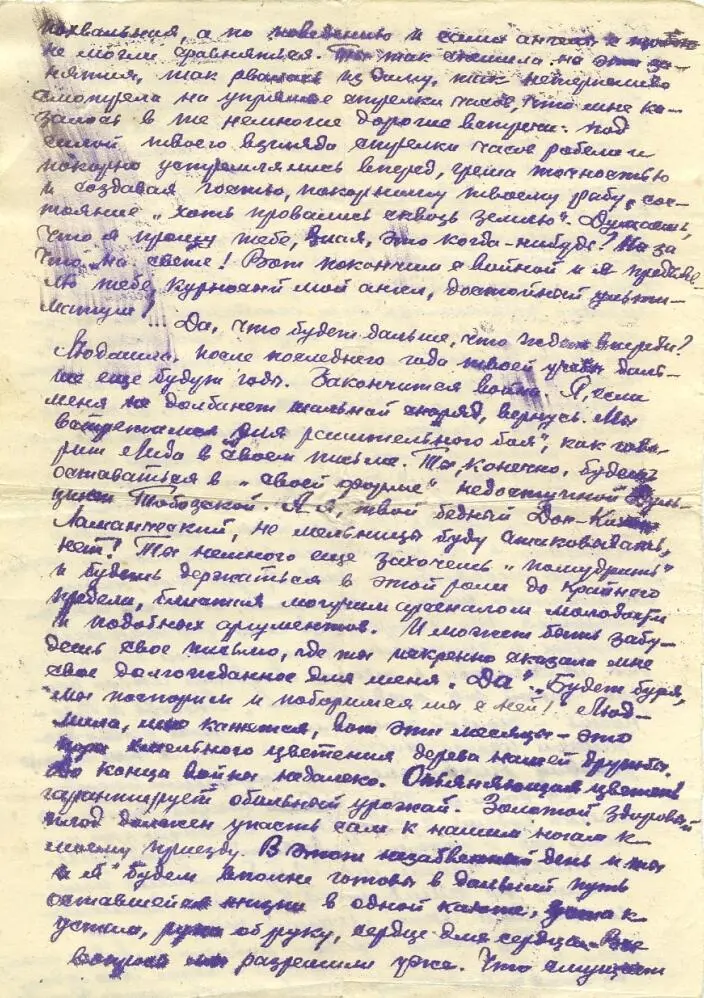 похвальния, а по поведению и сами ангелы с
не могли сравняться. Ты так спешила на эти за-
нятия, так рвалась из дому, так нетерпеливо
смотрела на упрямые стрелки часов, что мне ка-
залось в те немногие дорогие встречи: под
силой твоего взгляда стрелки часов робели и
покорно устремлялись вперед, греша точностью
и создавая гостью, покорному твоему рабу, сос-
тояние „хоть провались сквозь землю". Думаешь,
что я прощу тебе, злая, это когда-нибудь? Ни за
что на свете! Вот покончим с войной и я предъяв-
лю тебе, курносый мой ангел, достойный ульти-
матум!...
Да, что будет дальше, что ждет впереди?
Людашка, после последнего года твоей учебы даль-
ше еще будут годы. Закончится война. Я, если
меня не долбанет шальной снаряд, вернусь. Мы
встретимся „для решительного боя", как гово-
рит Лида в своем письме. Ты, конечно, будешь
оставаться в „своей форме" недоступной Дуль-
цинеи Тобозской. А я, твой бедный Дон-Кихот
Ламанческий, не мельницы буду атаковывать,
нет! Ты немного еще захочешь „помудрить"
и будешь держаться в этой роли до крайнего
предела, блистая могучим арсеналом молодости
и подобных аргументов. И может быть забу-
дешь свое письмо, где ты искренно сказала мне
свое долгожданное для меня „Да". „Будет буря,
мы поспорим и поборимся мы с ней!" Люд-
мила, мне кажется, вот эти месяцы – это
пора хмельного цветения дерева нашей дружбы.
До конца войны недалеко. Опьяняющая цветень
гарантирует обильный урожай. Золотой, здоровый
плод должен упасть сам к нашим ногам к
моему приезду. В этот незабвенный день и ты
и я будем вполне готовы в дальний путь
оставшейся жизни в одной каюте, уста к
устам, рука об руку, сердце для сердца. Все
вопросы разрешили уже. Что смущает